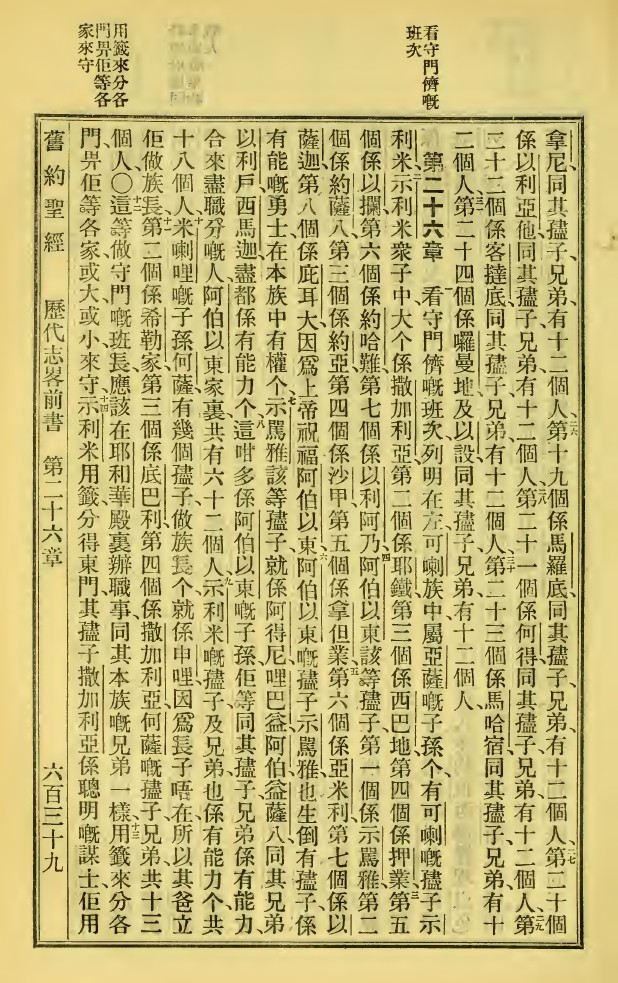 看守門儕嘅
班次
用籤來分各
門畀佢等各
家來守
拿尼同其孻子兄弟有十二個人第十九個係馬羅底同其孻子兄弟有十二個人第二十個
係以利亞他同其孻子兄弟有十二個人第二十一個係何得同其孻子兄弟有十二個人第
二十二個係客撻底同其孻子兄弟有十二個人第二十三個係馬哈宿同其孻子兄弟有十
二個人第二十四個係囉曼地及以設同其孻子兄弟有十二個人
第二十六章 看守門儕嘅班次列明在左可喇族中屬亞薩嘅子孫个有可喇嘅孻子示
利米示利米衆子中大个係撒加利亞第二個係耶鐵第三個係西巴地第四個係押業第五
個係以攔第六個係約哈難第七個係以利阿乃阿伯以東該等孻子第一個係示罵雅第二
個係約薩八第三個係約亞第四個係沙甲第五個係拿但業第六個係亞米利第七個係以
薩迦第八個係庇耳大因爲上帝祝福阿伯以東阿伯以東嘅孻子示罵雅也生倒有孻子係
有能嘅勇士在本族中有權个示罵雅該等孻子就係阿得尼哩巴益阿伯益薩八同其兄弟
以利戶西馬迦盡都係有能力个這咁多係阿伯以東嘅子孫佢等同其孻子兄弟係有能力
合來盡職分嘅人阿伯以東家裏共有六十二個人示利米嘅孻子及兄弟也係有能力个共
十八個人米喇哩嘅子孫何薩有幾個孻子做族長个就係申哩因爲長子唔在所以其爸立
佢做族長第二個係希勒家第三個係底巴利第四個係撒加利亞何薩嘅孻子兄弟共十三
個人○這等做守門嘅班長應該在耶和華殿裏辦職事同其本族嘅兄弟一樣用籤來分各
門畀佢等各家或大或小來守示利米用籤分得東門其孻子撒加利亞係聰明嘅謀士佢用
舊約聖經 歷代志畧前書 第二十六章 六百三十九